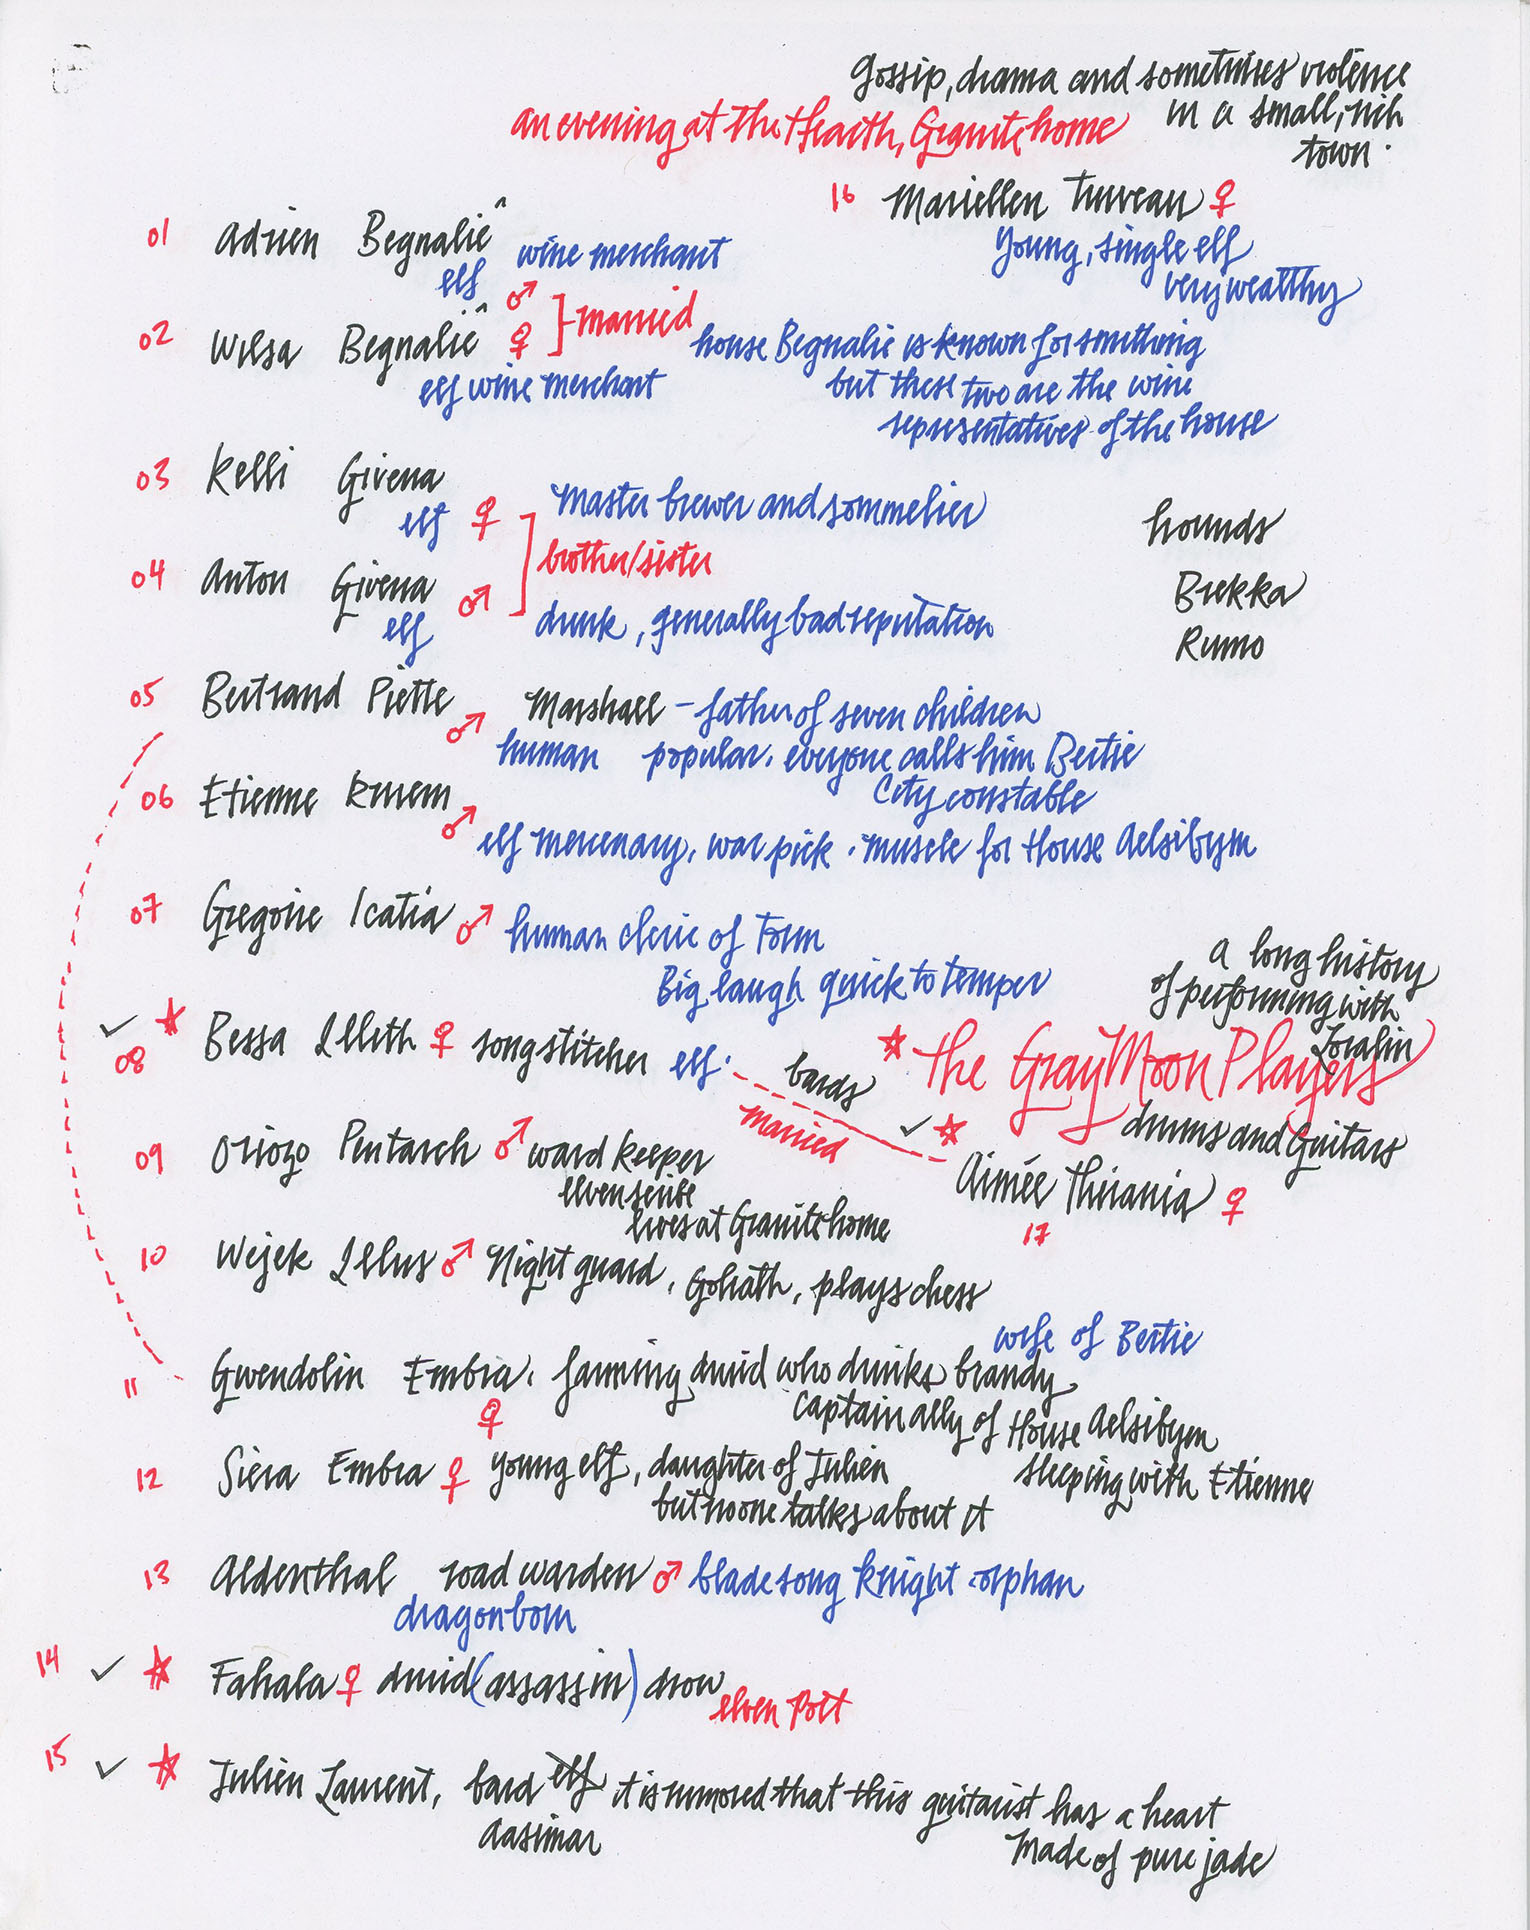 Gossip, drama and sometimes violence
in a small, rich
town.
an evening at the Hearth, Granite home
16 Mariellen Turveau ♀
Young, single elf
very wealthy
01 Adrien Begnalie^
elf ♂ wine merchant
married
02 Wilsa Begnalie^ ♀
elf wine merchant
house Begnalie is known for something
but these two are the wine
representatives of the house
03 Kelli Givena
elf ♀ Master brewer and sommelier
brother/sister
04 Anton Givena
elf ♂ drunk, generally bad reputation
hounds
Brekka
Rumo
05 Bertrand Piette ♂ Marshall - father of seven children
human popular. everyone calls him Bertie
City constable
06 Etienne ♂
elf mercenary, war pick. muscle for House Aelsibym
07 Gregoire Icatia ♂ human cleric of
Big laugh quick to temper
08 ✓ ★ Bessa Lilleth ♀ songstitcher elf.
bards
married
a long history
of performing with
★ The Gray Moon Players
drums and Guitars
✓ ★ Aimée Thirania ♀
17
09 Oriozo Pentarch ♂ ward keeper
elven scribe
lives at Granite home
10 Wejek Illus ♂ Night guard, Goliath, plays chess
wife of Bertie
11 Gwendolin Embra. farming druid who drinks brandy,
♀ captain ally of House Aelsibym
sleeping with Etienne
12 Siera Embra ♀ young elf, daughter of Julien
but no one talks about it
13 Aldenthal road warden ♂ bladesong knight. orphan
dragonborn
14 ✓ ★ Fahala ♀ druid (assassin) drow
elven Poet
15 ✓ ★ Julien Laurent, bard elf it is rumored that this guitarist has a heart
Aasimar made of pure jade